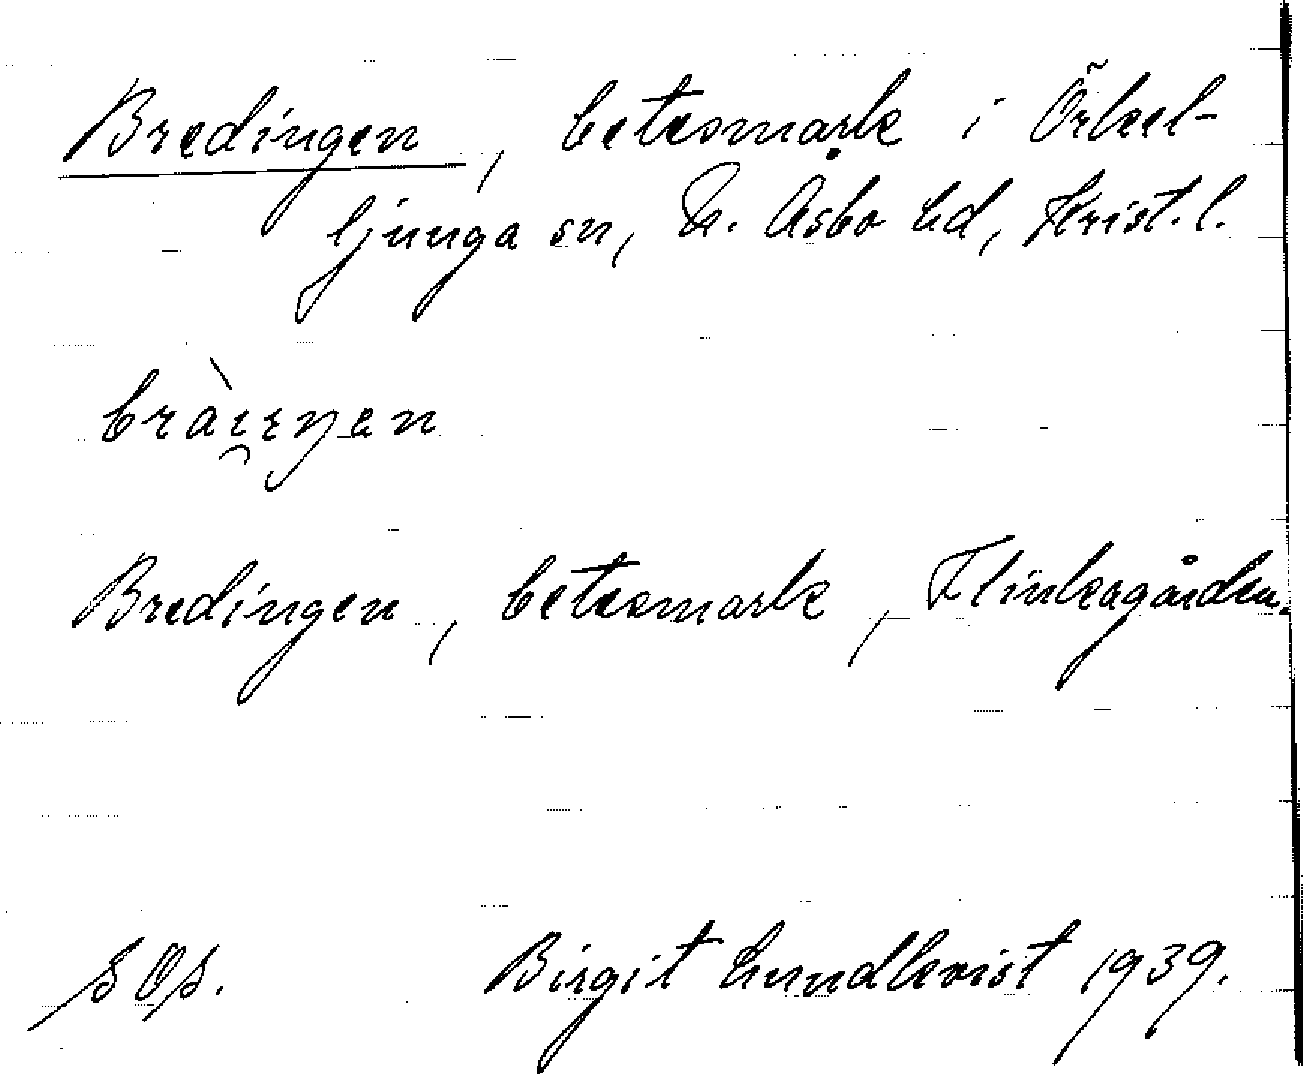 Bredingen, betesmark i Örkel-
ljunga sn, N. Åsbo hd, Krist. l.
bràɪŋen
Bredingen, betesmark, Flinkagården.
Birgit Lundkvist 1939.